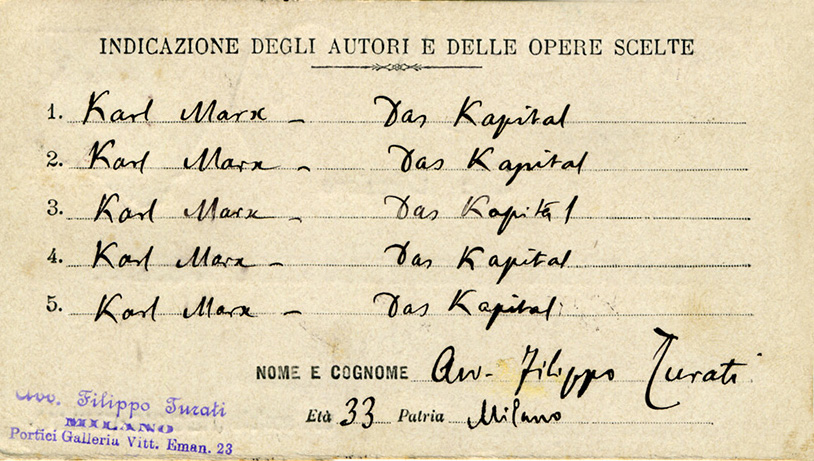 INDICAZIONE DEGLI AUTORI E DELLE OPERE SCELTE
1. Karl Marx – Das Kapital
2. Karl Marx – Das Kapital
3. Karl Marx – Das Kapital
4. Karl Marx – Das Kapital
5. Karl Marx – Das Kapital
NOME E COGNOME Avv. Filippo Turati
Età 33 Patria Milano
Avv. Filippo Turati
MILANO
Portici Galleria Vitt. Eman. 23